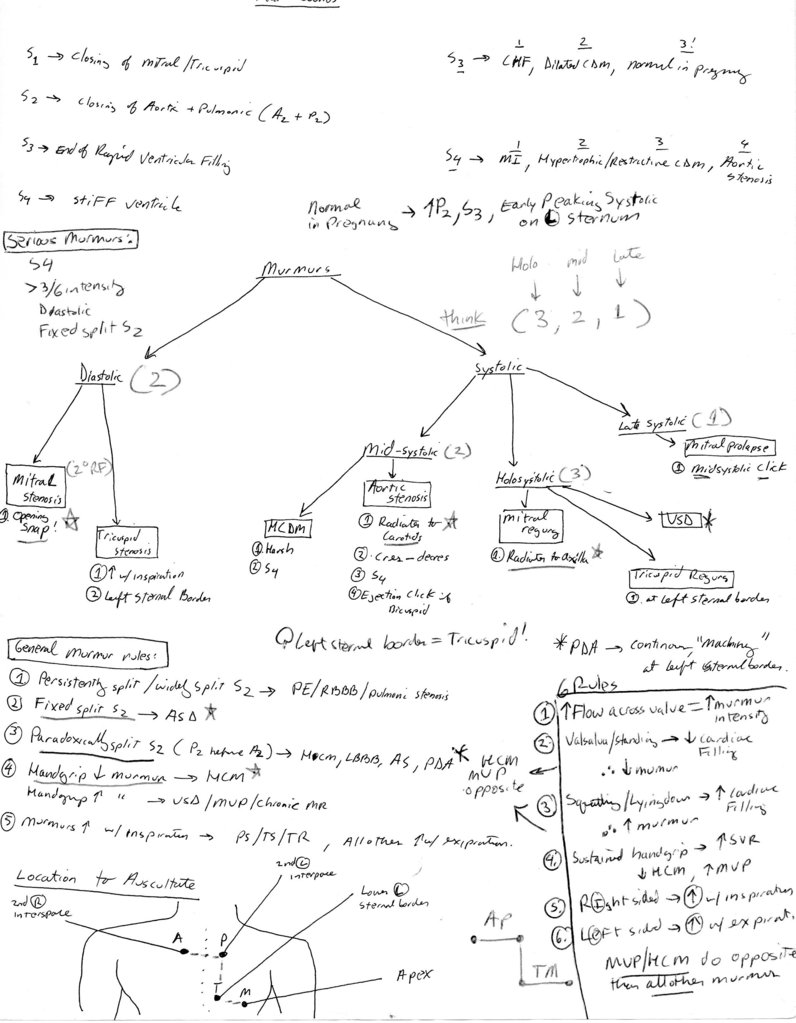 S1 → Closing of Mitral/Tricuspid
S2 → Closing of Aortic + Pulmonic (A2 + P2)
S3 → End of Rapid Ventricular Filling
S4 → Stiff Ventricle
1 2 3!
S3 → CHF, Dilated CDM, normal in pregnancy
1 2 3 4
S4 → MI, Hypertrophic/Restrictive CDM, Aortic stenosis
Normal in Pregnancy → ↑P2, S3, Early Peaking Systolic on Ⓛ sternum
Serious Murmurs:
S4
>3/6 intensity
Diastolic
Fixed split S2
Murmurs
Holo mid Late
think (3, 2, 1)
Diastolic (2)
Systolic
Mitral stenosis (2° RF)
①. Opening Snap!
Tricuspid stenosis
① ↑ w/ inspiration
② Left Sternal Border
Mid-systolic (2)
HCDM
① Harsh
② S4
Aortic stenosis
① Radiates to Carotids
② Cres-decres
③ S4
④ Ejection Click if Bicuspid
Holosystolic (3)
Mitral regurg
① Radiates to axilla
VSD *
Tricuspid Regurg
①. at Left sternal border
Late Systolic (1)
Mitral prolapse
① midsystolic click
Left sternal border = Tricuspid!
* PDA → continous, "Machiney" at left sternal border.
General murmur rules:
① Persistently split/widely split S2 → PE/RBBB/pulmonic stenosis
② Fixed split S2 → ASD
③ Paradoxically split S2 (P2 before A2) → HOCM, LBBB, AS, PDA *
④ Handgrip ↓ murmur → HCM
Handgrip ↑ " → VSD/MVP/Chronic MR
⑤ Murmurs ↑ w/ inspiration → PS/TS/TR, All other ↑ w/ expiration.
HCM
MVP
opposite
6 Rules
① ↑Flow across valve = ↑murmur intensity
② Valsalva/standing → ↓ cardiac Filling
∴ ↓ murmur
③ Squatting/Lying down → ↑ cardiac filling
∴ ↑ murmur
④. Sustained handgrip → ↑SVR
↓HCM, ↑MVP
⑤. Right sided → ↑ w/ inspiration
⑥. Left sided → ↑ w/ expirati.
MVP/HCM do opposite than all other murmur
Location to Auscultate
2nd Ⓡ interspace
2nd Ⓛ interspace
Lower Ⓛ sternal border
Apex
A P
T M
AP
TM